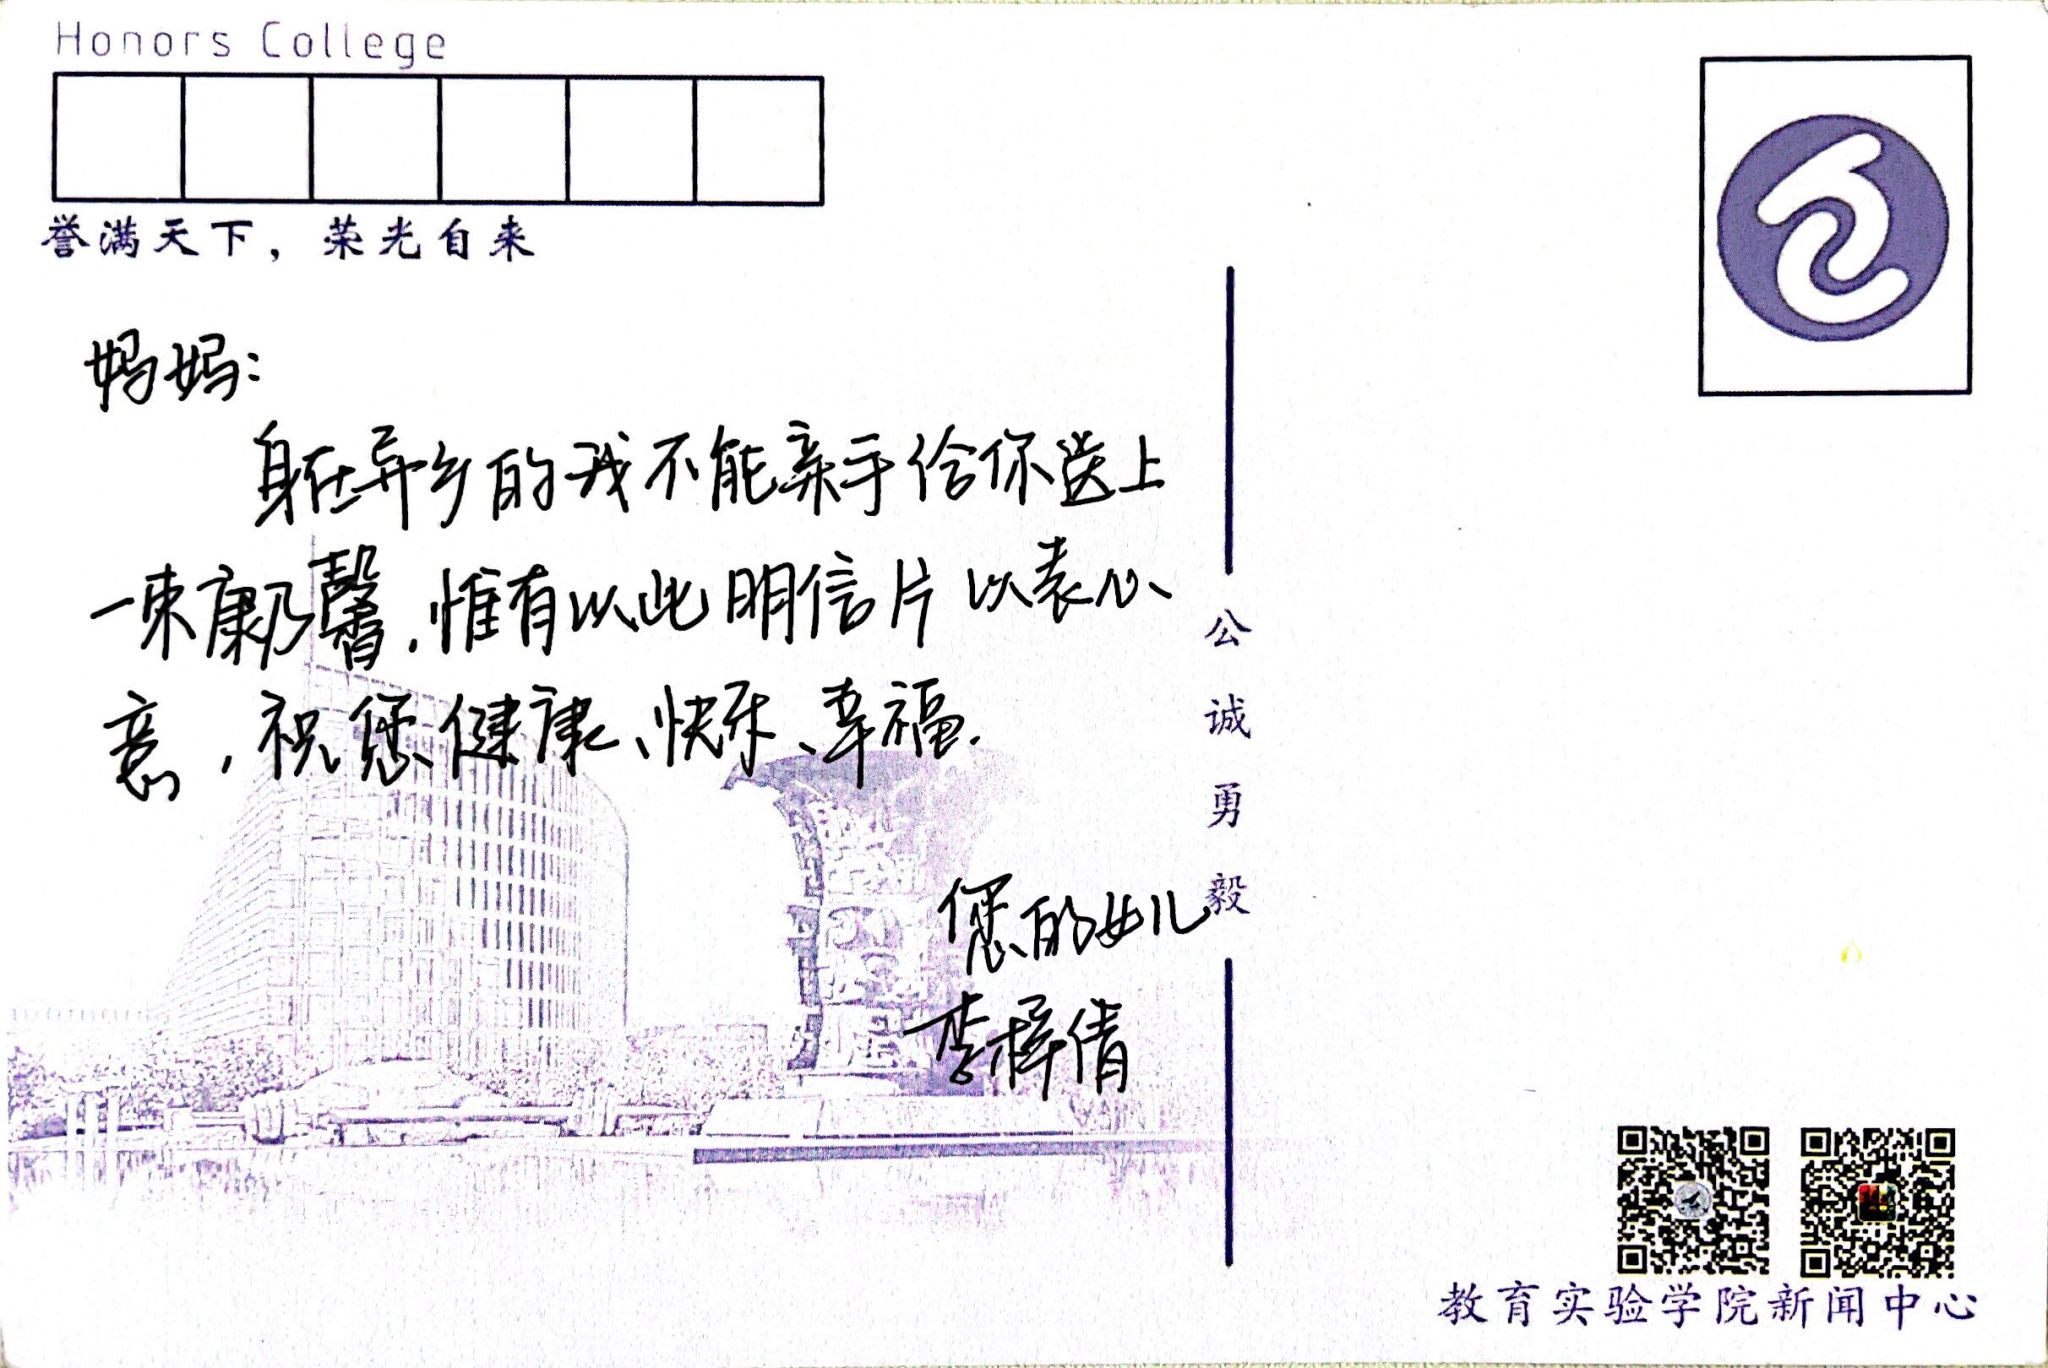 Honors College
誉满天下，荣光自来
妈妈：
身在异乡的我不能亲手给你送上
一束康乃馨，惟有以此明信片以表心
意，祝您健康、快乐、幸福.
您的女儿
李梓倩
公
诚
勇
毅
教育实验学院新闻中心